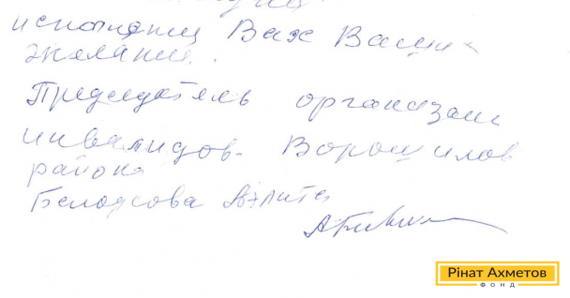 исполнения Всех Ваших
желаний.
Председатель организации
инвалидов Ворошилов
района
Белоусова Аэлита
Рінат Ахметов
ФОНД